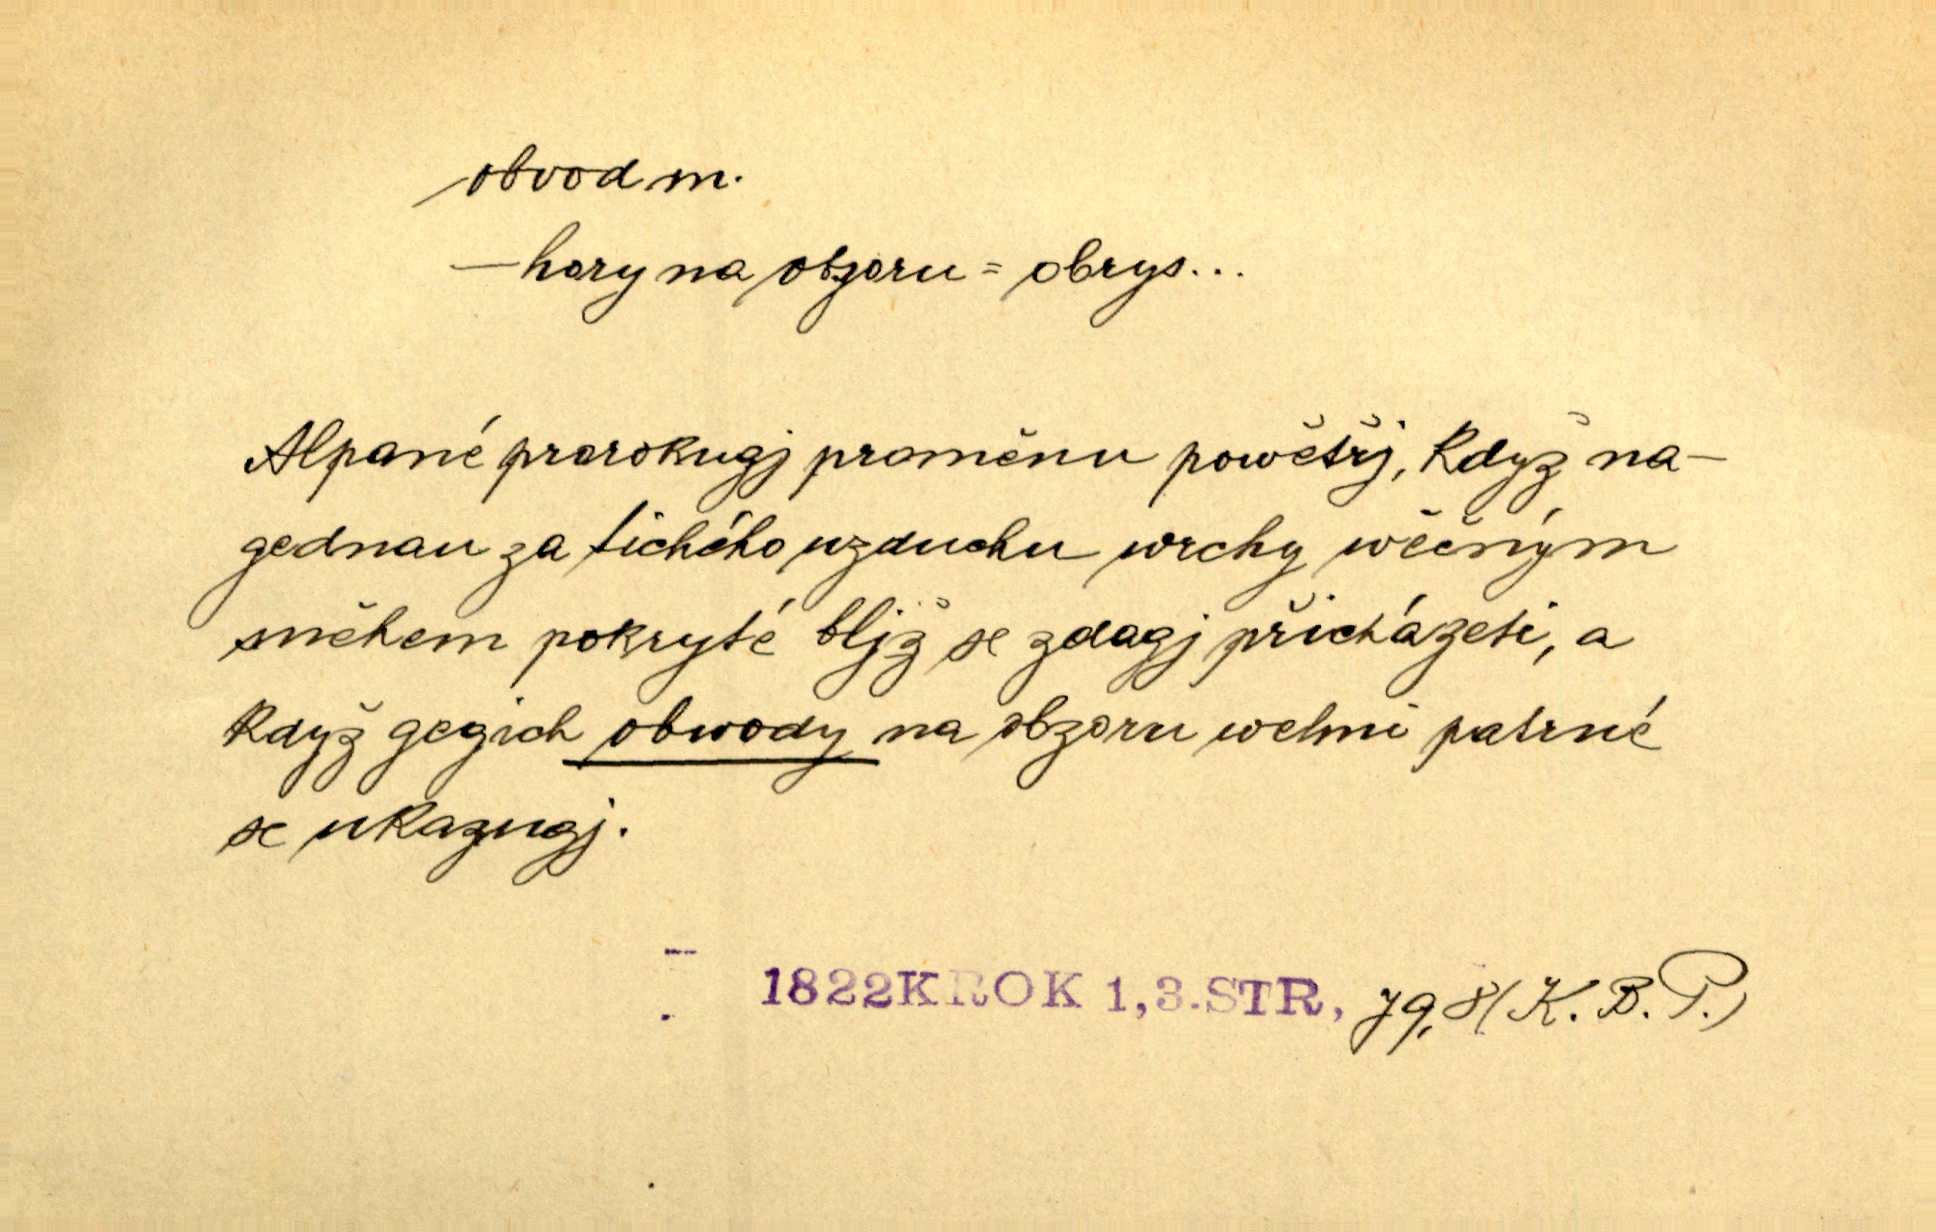 obvod m.
— hory na obzoru = obrys...
Alpané prorokugj proměnu powětřj, když na-
gednau za tichého wzduchu wrchy wěčným
sněhem pokryté bljž se zdagj přicházeti, a
když gegich obwody na obzoru welmi patrné
se ukazugj.
1822 KROK 1,3. STR, 79,8/(K. B. P.)